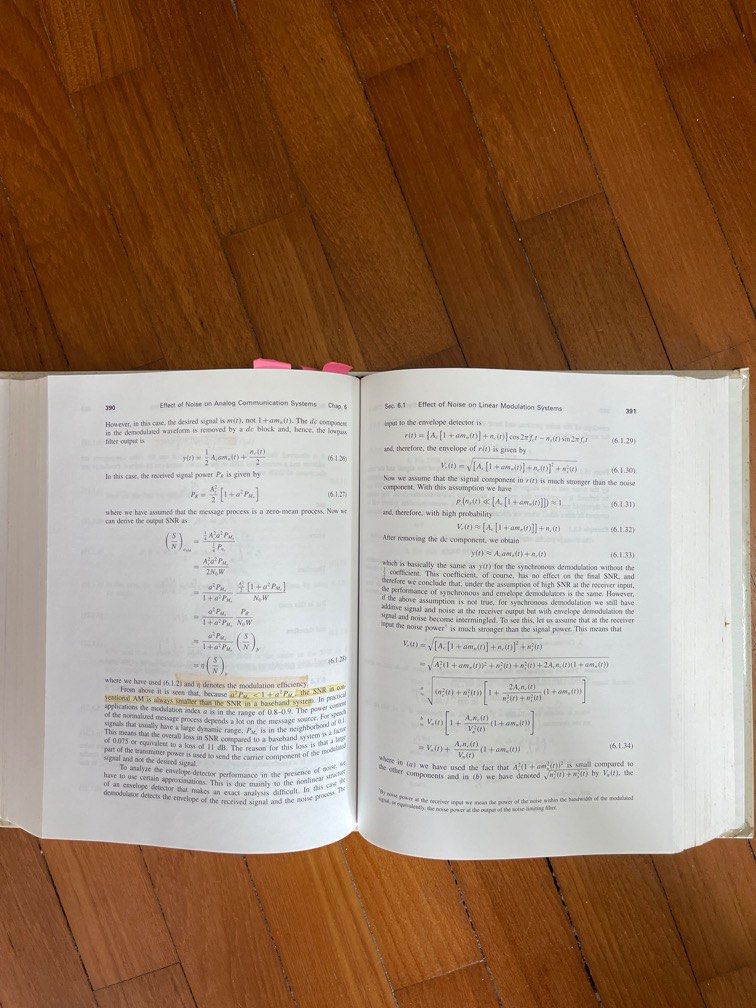 390 Effect of Noise on Analog Communication Systems Chap. 6
However, in this case, the desired signal is m(t), not 1 + am_n(t). The dc component
in the demodulated waveform is removed by a dc block and, hence, the lowpass
filter output is
y(t) = \frac{1}{2} A_c am_n(t) + \frac{n_c(t)}{2} (6.1.26)
In this case, the received signal power P_R is given by
P_R = \frac{A_c^2}{2} [1 + a^2 P_{M_n}] (6.1.27)
where we have assumed that the message process is a zero-mean process. Now we
can derive the output SNR as
(\frac{S}{N})_{o_{AM}} = \frac{\frac{1}{4} A_c^2 a^2 P_{M_n}}{\frac{1}{4} P_{n_c}}
= \frac{A_c^2 a^2 P_{M_n}}{2 N_0 W}
= \frac{a^2 P_{M_n}}{1 + a^2 P_{M_n}} \frac{\frac{A_c^2}{2} [1 + a^2 P_{M_n}]}{N_0 W}
= \frac{a^2 P_{M_n}}{1 + a^2 P_{M_n}} \frac{P_R}{N_0 W}
= \frac{a^2 P_{M_n}}{1 + a^2 P_{M_n}} (\frac{S}{N})_b
= η (\frac{S}{N})_b (6.1.28)
where we have used (6.1.2) and η denotes the modulation efficiency.
From above it is seen that, because a^2 P_{M_n} < 1 + a^2 P_{M_n}, the SNR in con-
ventional AM is always smaller than the SNR in a baseband system. In practical
applications the modulation index a is in the range of 0.8–0.9. The power content
of the normalized message process depends a lot on the message source. For speech
signals that usually have a large dynamic range, P_{M_n} is in the neighborhood of 0.1.
This means that the overall loss in SNR compared to a baseband system is a factor
of 0.075 or equivalent to a loss of 11 dB. The reason for this loss is that a large
part of the transmitter power is used to send the carrier component of the modulated
signal and not the desired signal.
To analyze the envelope-detector performance in the presence of noise, we
have to use certain approximations. This is due mainly to the nonlinear structure
of an envelope detector that makes an exact analysis difficult. In this case the
demodulator detects the envelope of the received signal and the noise process. The
Sec. 6.1 Effect of Noise on Linear Modulation Systems 391
input to the envelope detector is
r(t) = [A_c [1 + am_n(t)] + n_c(t)] cos 2πf_c t − n_s(t) sin 2πf_c t (6.1.29)
and, therefore, the envelope of r(t) is given by
V_r(t) = \sqrt{[A_c [1 + am_n(t)] + n_c(t)]^2 + n_s^2(t)} (6.1.30)
Now we assume that the signal component in r(t) is much stronger than the noise
component. With this assumption we have
P(n_c(t) ≪ [A_c [1 + am_n(t)]]) ≈ 1 (6.1.31)
and, therefore, with high probability
V_r(t) ≈ [A_c [1 + am_n(t)]] + n_c(t) (6.1.32)
After removing the dc component, we obtain
y(t) ≈ A_c am_n(t) + n_c(t) (6.1.33)
which is basically the same as y(t) for the synchronous demodulation without the
\frac{1}{2} coefficient. This coefficient, of course, has no effect on the final SNR, and
therefore we conclude that, under the assumption of high SNR at the receiver input,
the performance of synchronous and envelope demodulators is the same. However,
if the above assumption is not true, for synchronous demodulation we still have
additive signal and noise at the receiver output but with envelope demodulation the
signal and noise become intermingled. To see this, let us assume that at the receiver
input the noise power* is much stronger than the signal power. This means that
V_r(t) = \sqrt{[A_c [1 + am_n(t)] + n_c(t)]^2 + n_s^2(t)}
= \sqrt{A_c^2 (1 + am_n(t))^2 + n_c^2(t) + n_s^2(t) + 2A_c n_c(t)(1 + am_n(t))}
\stackrel{a}{≈} \sqrt{(n_c^2(t) + n_s^2(t)) [1 + \frac{2A_c n_c(t)}{n_c^2(t) + n_s^2(t)} (1 + am_n(t))]}
\stackrel{b}{≈} V_n(t) [1 + \frac{A_c n_c(t)}{V_n^2(t)} (1 + am_n(t))]
= V_n(t) + \frac{A_c n_c(t)}{V_n(t)} (1 + am_n(t)) (6.1.34)
where in (a) we have used the fact that A_c^2 (1 + am_n(t))^2 is small compared to
the other components and in (b) we have denoted \sqrt{n_c^2(t) + n_s^2(t)} by V_n(t), the
*By noise power at the receiver input we mean the power of the noise within the bandwidth of the modulated
signal, or equivalently, the noise power at the output of the noise-limiting filter.